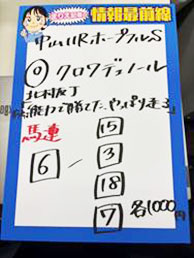 情報最前線
中山11RホープフルS
◎クロワデュノール
北村友丁
「能力で勝てた、やっぱり走る」
馬連
6 - 15
3
18
7 各1000円